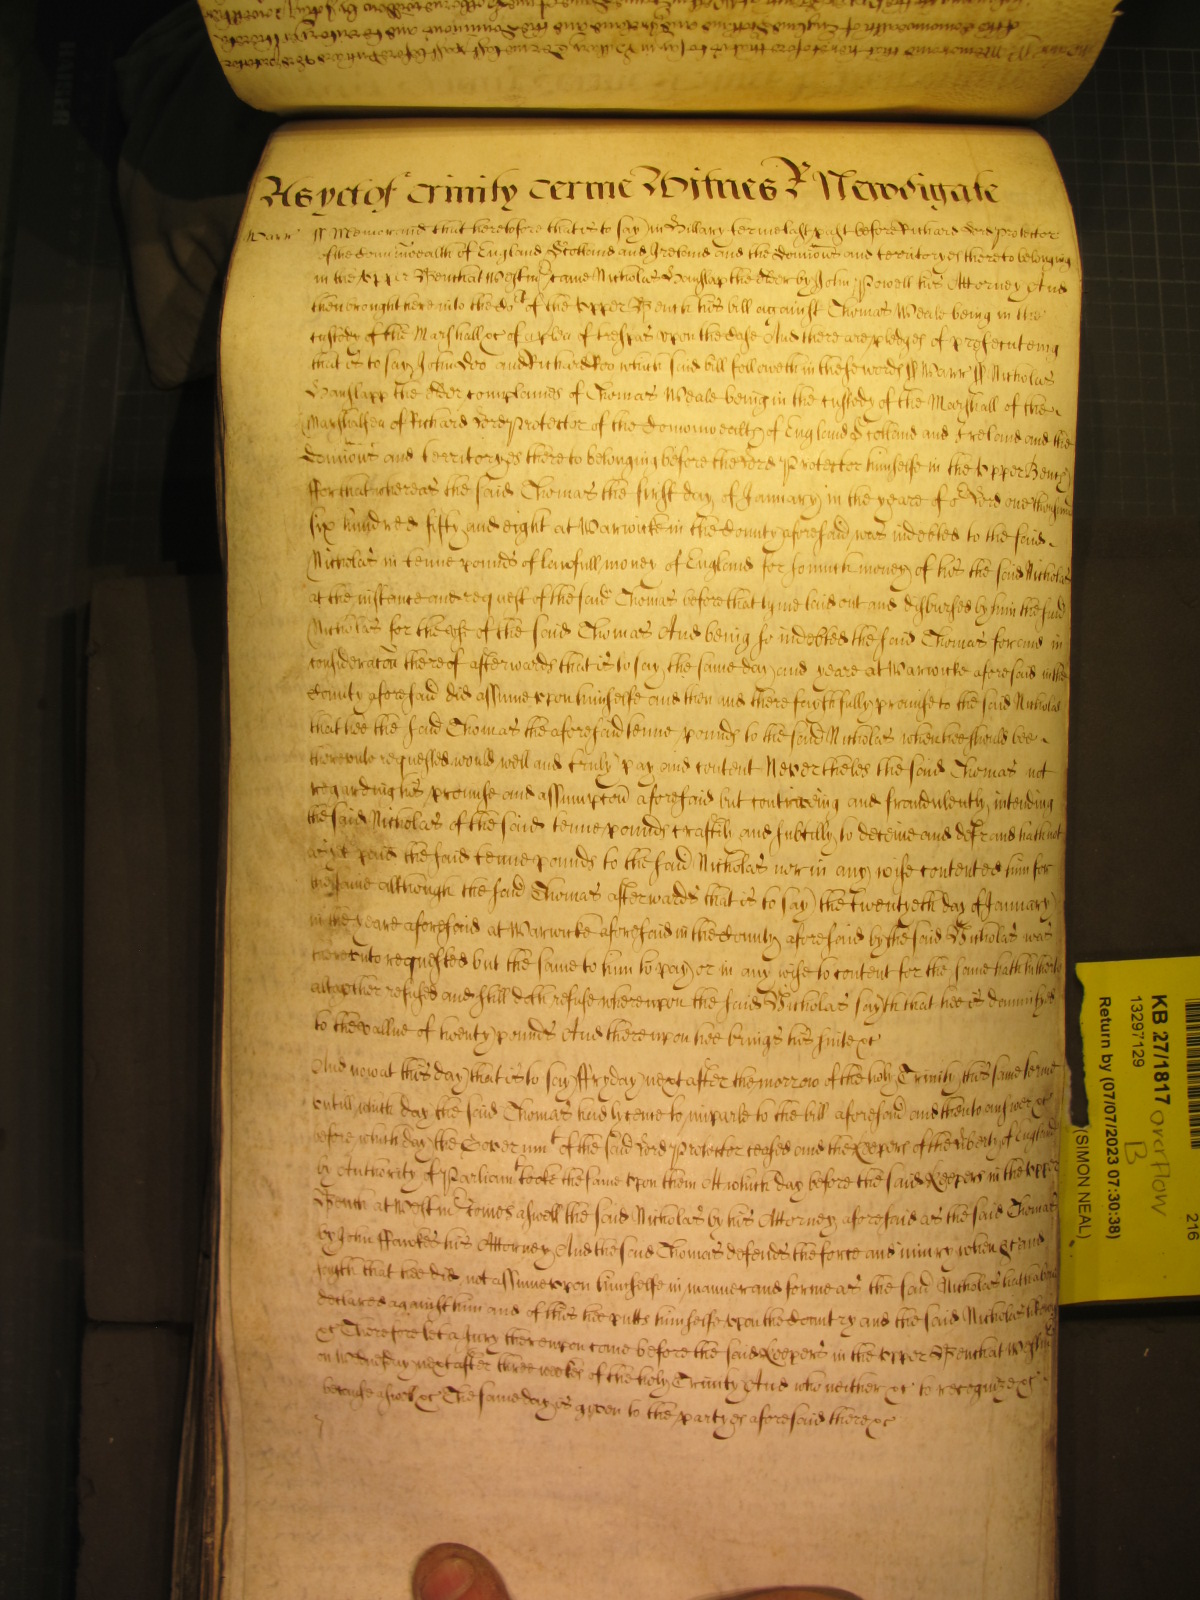 As yet of Trinity Terme Witnes R Newdigate
Warr ss Memorand that heretofore that is to say in Hillary terme last past before Richard Lord Protector
of the Comonwealth of England Scotland and Ireland and the Dominions and territoryes thereto belonging
in the Upper Bench at Westmr came Nicholas Vanslapp the elder by John Powell his Attorney And
then brought here into the Cot of the Upper Bench his bill against Thomas Weale being in the
custody of the Marshall &c of a plea of trespas upon the Case And there are pledges of prosecuteing
that is to say John Doo and Richard Roo which said bill followeth in these words ss Warr ss Nicholas
Vanslapp the elder complaines of Thomas Weale being in the custody of the Marshall of the
Marshalsea of Richard Lord Protector of the Comonwealth of England Scotland and Ireland and the
Dominions and territoryes thereto belonging before the Lord Protector himselfe in the Upper Bench
ffor that whereas the said Thomas the first day of January in the yeare of or Lord one thousand
six hundred fifty and eight at Warwicke in the County aforesaid was indebted to the said
Nicholas in tenne pounds of lawfull money of England for so much money of his the said Nicholas
at the instance and request of the said Thomas before that tyme laid out and disbursed by him the said
Nicholas for the use of the said Thomas And being so indebted the said Thomas for and in
consideracon thereof afterwards that is to say the same day and yeare at Warwicke aforesaid in the
County aforesaid did assume upon himselfe and then and there faythfully promise to the said Nicholas
that hee the said Thomas the aforesaid tenne pounds to the said Nicholas when hee should bee
thereunto requested would well and truly pay and content Neverthelesse the said Thomas not
regarding his promise and assumpcon aforesaid but contriveing and fraudulently intending
the said Nicholas of the said tenne pounds craftily and subtilly to deceive and defraud hath not
as yet paid the said tenne pounds to the said Nicholas nor in any wise contented him for
the same although the said Thomas afterwards that is to say the twentyeth day of January
in the yeare aforesaid at Warwicke aforesaid in the County aforesaid by the said Nicholas was
thereunto requested but the same to him to pay or in any wise to content for the same hath hitherto
altogether refused and still doth refuse whereupon the said Nicholas sayth that hee is damnifyed
to the vallue of twenty pounds And thereupon hee brings his suite &c
And now at this day that is to say ffryday next after the morrow of the holy Trinity this same terme
untill which day the said Thomas had lycence to imparle to the bill aforesaid and then to answer &c
before which day the Governmt of the said Lord Protector ceased and the Keepers of the liberty of England
by Authority of Parliamt tooke the same upon them Att which day before the said Keepers in the Upper
Bench at Westmr comes aswell the said Nicholas by his Attorney aforesaid as the said Thomas
by John ffawkes his Attorney And the said Thomas defends the force and iniury when &c and
sayth that hee did not assume upon himselfe in manner and forme as the said Nicholas hath above
declared against him and of this hee putts himselfe upon the Country and the said Nicholas likewise
&c Therefore let a Jury thereupon come before the said Keepers in the Upper Bench at Westmr
on Wednesday next after three weekes of the holy Trinity And who neither &c to recognize &c
because aswell &c The same day is given to the partyes aforesaid there &c
KB 27/1817 overflow
B
13297129
Return by (07/07/2023 07:30:38)
(SIMON NEAL)
216